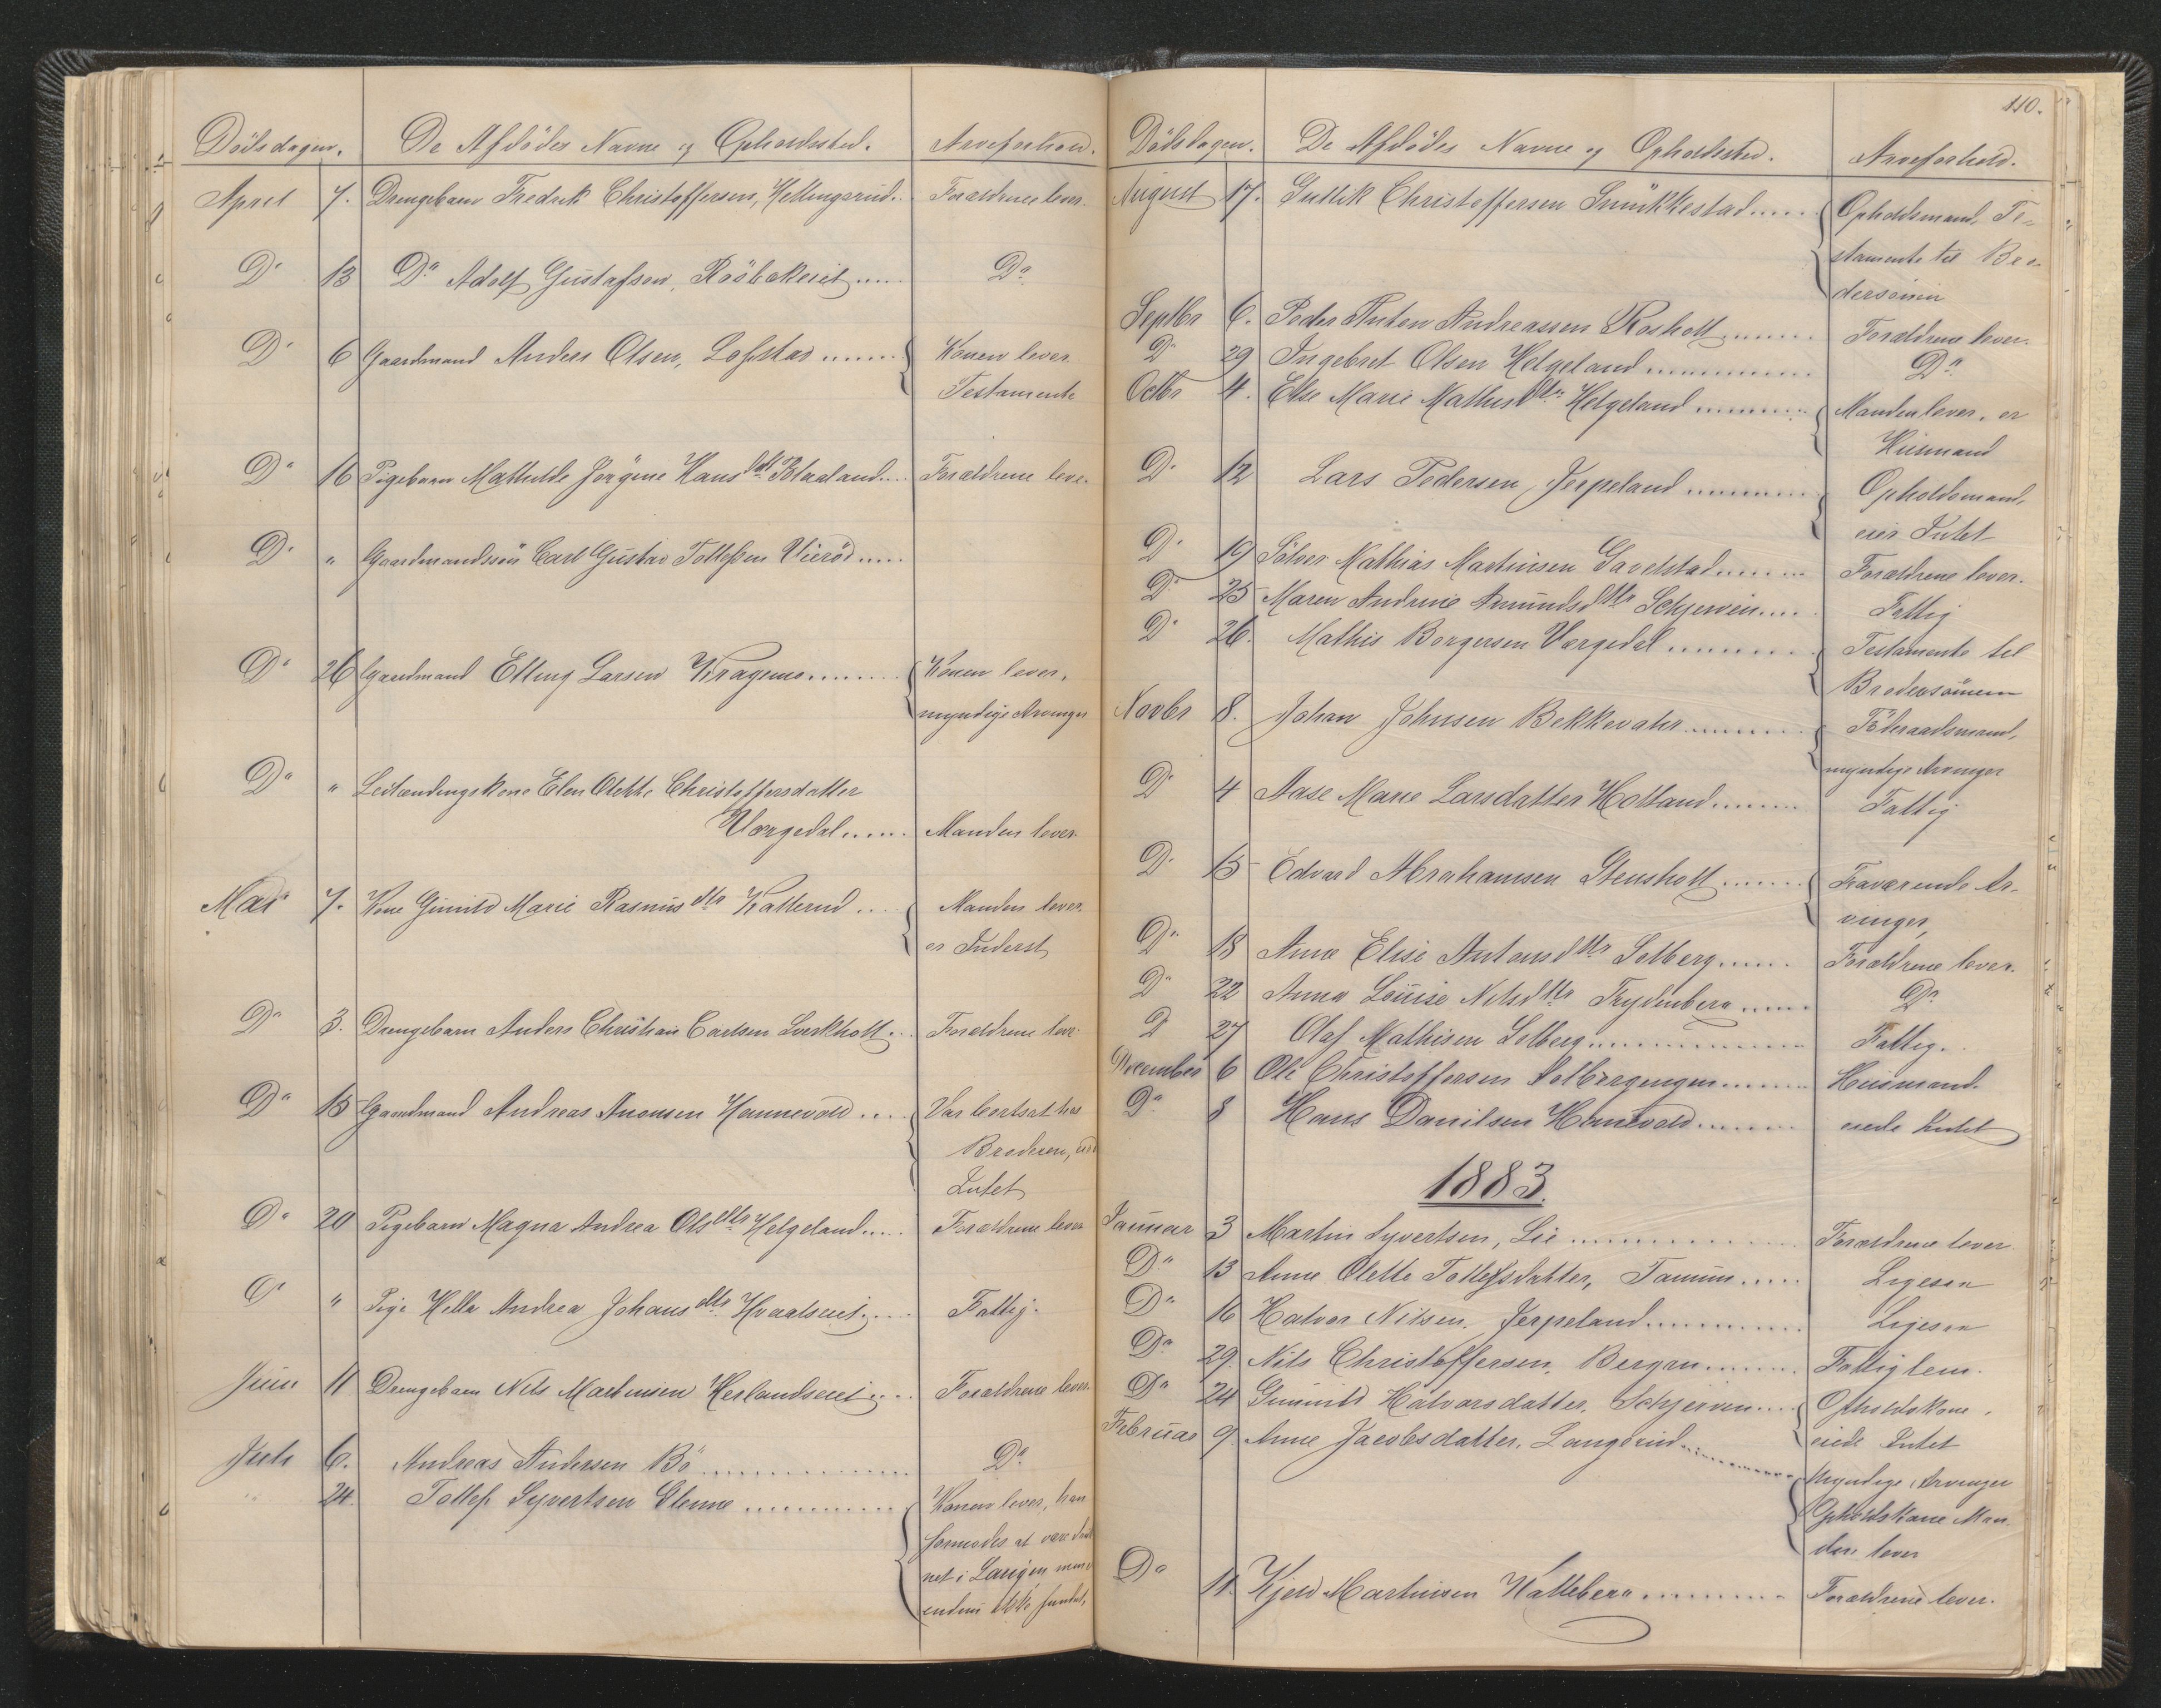 Dödsdagen. De Afdödes Navne og Opholdssted. Arveforhold.
April 7. Drengebarn Fredrik Christoffersen, Hellingsrud.. Forældrene lever.
Do 13 Do Adolf Gustafson, Rööbakeiet..... Do
Do 6 Gaardmand Anders Olsen, Løfstad....... Konen lever.
Testamente
Do 16 Pigebarn Mathilde Jörgine Hansdtr Blaaland... Forældrene leve.
Do " Gaardmandssön Carl Gustav Tollefsen Vieröd.....
Do 26 Gaardmand Elling Larsen Kragemo........ Konen lever,
myndige Arvinger
Do " Leilændingskone Elen Olette Christoffersdatter
Vorgedal...... Manden lever
Mai 7. Kone Gunild Marie Rasmusdtr Katterud ... Manden lever.
er Inderst
Do 3. Drengebarn Anders Christian Carlsen Lerskholt.. Forældrene leve
Do 15 Gaardmand Andreas Anonsen Hannevold.... Var bortsat hos
Broderen,
Intet
Do 20 Pigebarn Magna Andrea Olsdtr Helgeland..... Forældrene lever
Do " Pige Hella Andrea Johansdtr Hvaalseiet.... Fattig.
Juni 11 Drengebarn Nils Martinsen Herlandseiet.... Forældrene lever.
Juli 6. Andreas Andersen Bö.............. Do
24. Tollef Syvertsen Glenne............ Konen lever, han
formodes at være druk
net i Laugen men
endnu ikke fundet,
110.
Dödsdagen. De Afdödes Navne og Opholdssted. Arveforhold.
August 17. Gullik Christoffersen Snükkestad..... Opholdsmand, Te-
stamente til Bro-
dersönnen
Septbr 6. Peder Anton Andreassen Rosholt....... Forældrene lever.
Do 29 Ingebret Olsen Helgeland.............. Do
Octbr 4. Else Marie Mathisdtr Helgeland......... Manden lever, er
Huusmand
Do 12 Lars Pedersen Jerpeland.......... Opholdsmand,
eier Intet
Do 19 Sölver Mathias Martinsen Gavelstad....... Forældrene lever.
Do 25 Maren Andrine Amundsdtr Schjerven.... Fattig
Do 26. Mathis Borgersen Vorgedal......... Testamente til
Brodersönnen
Novbr 8. Johan Johnsen Bekkevater.......... Föderaadsmand,
myndige Arvinger
Do 4 Aase Marie Larsdatter Holland....... Fattig
Do 15 Edvard Abrahamsen Stensholt....... Fraværende Ar-
vinger,
Do 18 Anne Elise Antonsdtr Solberg...... Forældrene lever.
Do 22 Anna Louise Nilsdtr Frydenberg..... Do
D 27 Olaf Mathisen Solberg............. Fattig.
December 6 Ole Christoffersen Solbergengen....... Huusmand.
Do 8 Hans Danilsen Hanevold......... eiede Intet
1883.
Januar 3 Martin Syvertsen, Lie............ Forældrene lever
Do 13 Anne Olette Tollefsdatter, Tamun..... Ligesaa
Do 16 Halvor Nilsen. Jerpeland............ Ligesaa
Do 29. Nils Christoffersen. Bergan........ Fattiglem.
Do 24 Gunnild Halvorsdatter. Schjerven.... Opholdskone,
eiede Intet
Februar 9. Anne Jacobsdatter. Langerud........ Myndige Arvinger
Opholdskone Man-
den lever
Do 11. Kjeld Martinsen Kalleberg......... Forældrene lever.